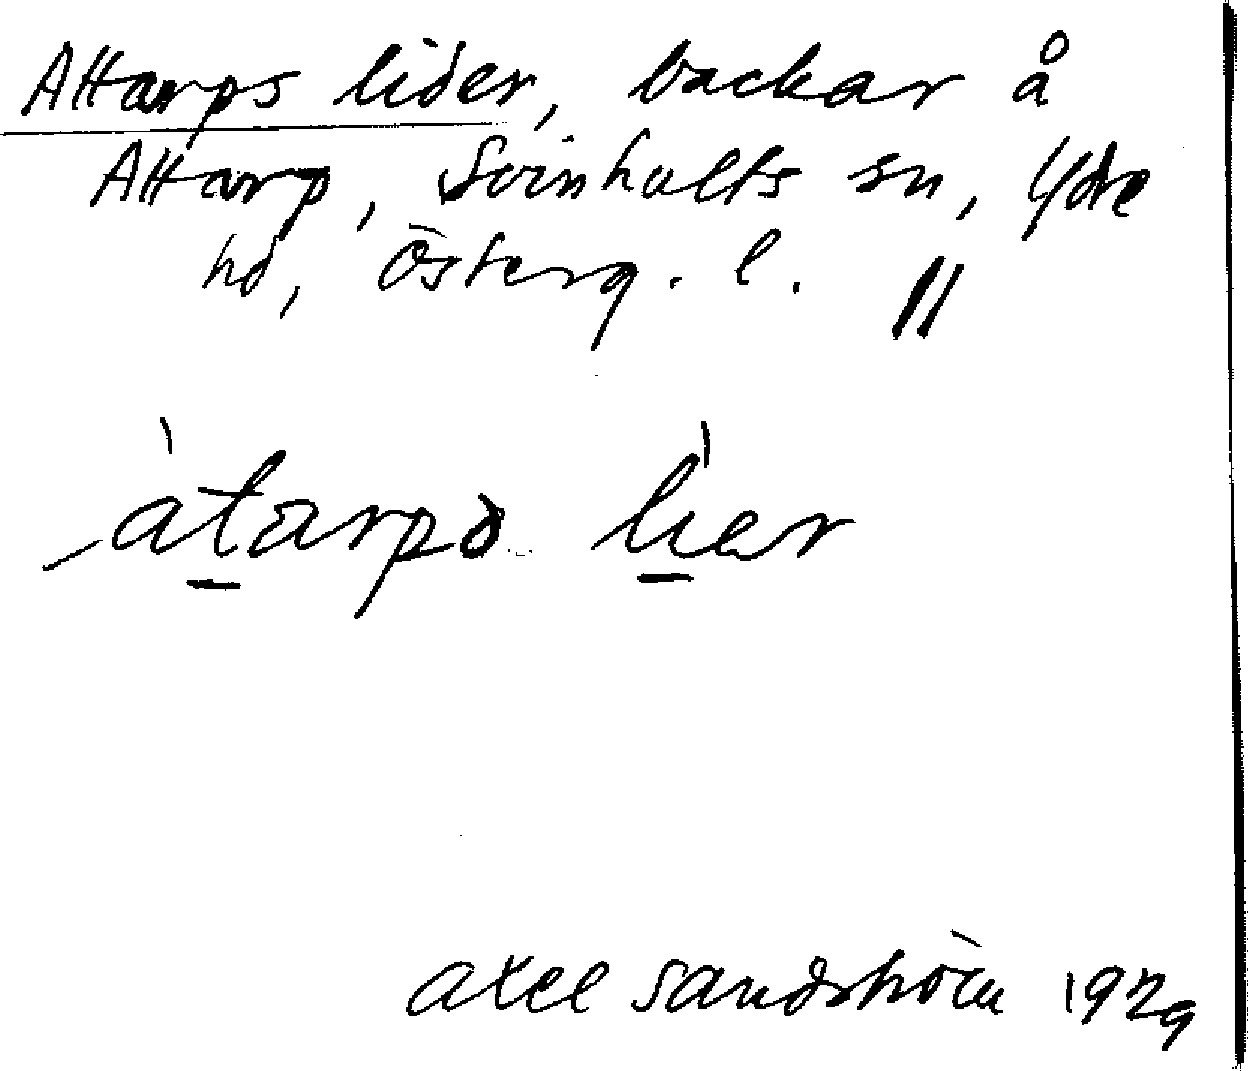 Attarps lider, backar å
Attarp, Svinhults sn, Ydre
hd, Österg. l. //
àtarps lìer
Axel Sandström 1929